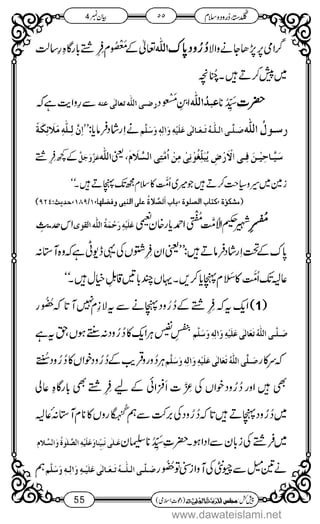 گلدستہ دُرود و سلام ۵۵ بیان نمبر 4
گرامی پر پڑھا جانے والا دُرودِ پاک اللہ تعالٰی کے معصوم فرشتے بارگاہِ رسالت
میں پیش کرتے ہیں۔ چُنانچہ
حضرت سیِّدُنا عبدُاللہ ابنِ مسعود رضی اللہ تعالٰی عنہ سے روایت ہے کہ
رسولُ اللہ صَلَّی اللہُ تَعَالٰی عَلَیْہِ وَاٰلِہٖ وَسَلَّم نے ارشاد فرمایا: ”اِنَّ لِلّٰہِ مَلَائِکَۃً
سَیَّاحِیْنَ فِی الْاَرْضِ یُبَلِّغُوْنِیْ مِنْ اُمَّتِی السَّلَام، یعنی اللہ عَزَّوَجَلَّ کے کچھ فرشتے
زمین میں سیر و سیاحت کرتے ہیں جو میری اُمَّت کا سلام مجھ تک پہنچاتے ہیں۔“
(مشکوۃ، کتاب الصلوۃ، باب الصَّلاۃ علی النبی وفضلہا، ۱/۱۸۹، حدیث: ۹۲۴)
مُفسّرِ شہیر حکیمُ الْاُمَّت مُفتی احمد یار خان نعیمی عَلَیْہِ رَحْمَۃُ اللہِ الْقَوِی اس حدیثِ
پاک کے تحت ارشاد فرماتے ہیں: ”یعنی ان فرشتوں کی یہی ڈیوٹی ہے کہ وہ آستانہ
عالیہ تک اُمَّت کا سلام پہنچایا کریں۔ یہاں چند باتیں قابلِ خیال ہیں۔“
(1) ایک یہ کہ فرشتے کے دُرود پہنچانے سے یہ لازم نہیں آتا کہ حُضُور
صَلَّی اللہُ تَعَالٰی عَلَیْہِ وَاٰلِہٖ وَسَلَّم بنفسِ نفیس ہر ایک کا دُرود نہ سنتے ہوں، حق یہ ہے
کہ سرکار صَلَّی اللہُ تَعَالٰی عَلَیْہِ وَاٰلِہٖ وَسَلَّم ہر دُور و قریب کے دُرود خواں کا دُرود سُنتے
بھی ہیں اور دُرود خواں کی عِزَّت افزائی کے لیے فرشتے بھی بارگاہِ عالی
میں دُرود پہنچاتے ہیں تاکہ دُرود کی برکت سے ہم گنہگاروں کا نام آستانہ عالیہ
میں فرشتے کی زبان سے ادا ہو۔ حضرت سیِّدُنا سلیمان عَلٰی نَبِیِّنَا وَعَلَیْہِ الصَّلٰوۃُ وَالسَّلَام
نے تین میل سے چیونٹی کی آواز سنی تو حُضُور صَلَّی اللہُ تَعَالٰی عَلَیْہِ وَاٰلِہٖ وَسَلَّم ہم
55
www.dawateislami.net